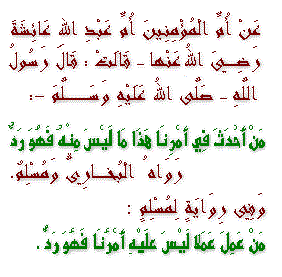 عَنْ أُمِّ الْمُؤْمِنِينَ أُمِّ عَبْدِ اللهِ عَائِشَةَ
رَضِيَ اللهُ عَنْها - قَالَتْ : قَالَ رَسُولُ
اللَّهِ - صَلَّى اللهُ عَلَيْهِ وَسَلَّمَ -:
مَنْ أَحْدَثَ فِي أَمْرِنَا هَذَا مَا لَيْسَ مِنْهُ فَهُوَ رَدٌّ
رَوَاهُ الْبُخَارِيُّ وَمُسْلِمٌ.
وَفِي رِوَايَةٍ لِمُسْلِمٍ :
مَنْ عَمِلَ عَمَلًا لَيْسَ عَلَيْهِ أَمْرُنَا فَهُوَ رَدٌّ .